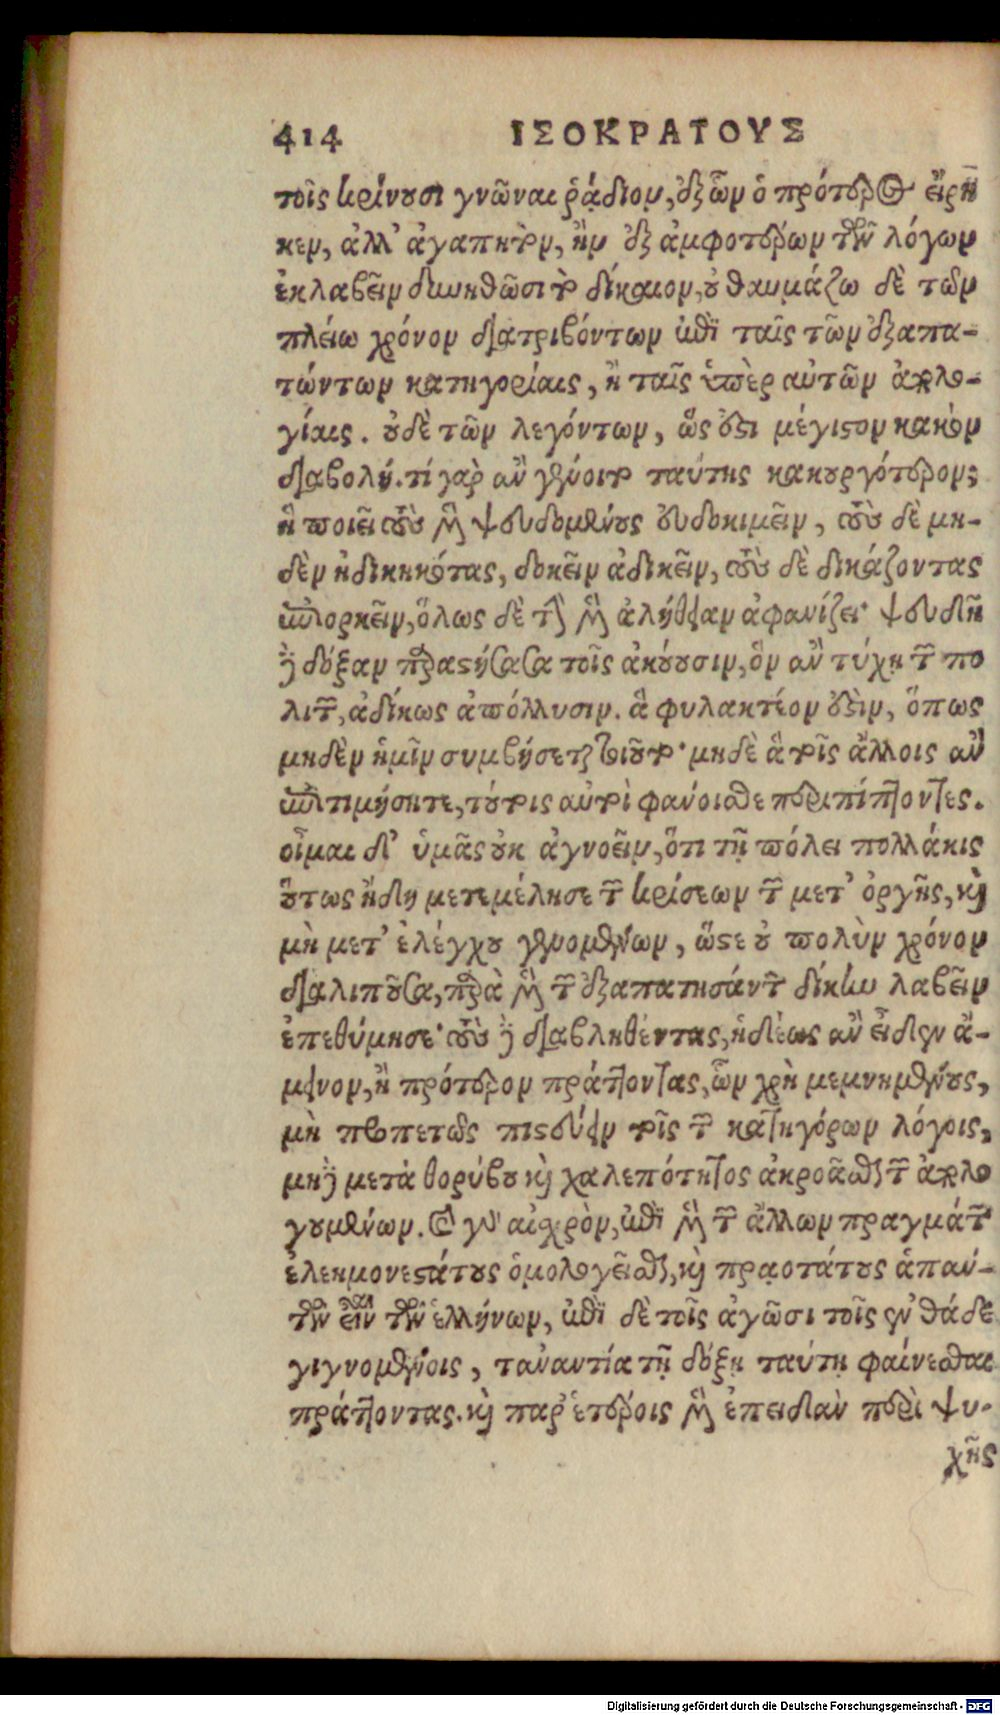 414 ΙΣΟΚΡΑΤΟΥΣ
τοῖς κρίνουσι γνῶναι ῥᾴδιον, ἐξ ὧν ὁ πρότερος εἴρη
κεν, ἀλλ' ἀγαπητὸν, ἢν ἐξ ἀμφοτέρων τῶν λόγων
ἐκλαβεῖν δυνηθῶσι τὸ δίκαιον, οὐ θαυμάζω δὲ τῶν
πλείω χρόνον διατριβόντων ἐπὶ ταῖς τῶν ἐξαπα-
τώντων κατηγορίαις, ἢ ταῖς ὑπὲρ αὐτῶν ἀπολο-
γίαις. οὐδὲ τῶν λεγόντων, ὥς ἐστι μέγιστον κακὸν
διαβολή. τί γὰρ ἂν γένοιτο ταύτης κακουργότερον;
ἣ ποιεῖ τοὺς μὲν ψευδομένους εὐδοκιμεῖν, τοὺς δὲ μη-
δὲν ἠδικηκότας, δοκεῖν ἀδικεῖν, τοὺς δὲ δικάζοντας
ἐπιορκεῖν, ὅλως δὲ τὴν μὲν ἀλήθειαν ἀφανίζει· ψευδῆ
δὲ δόξαν παραστήσασα τοῖς ἀκούουσιν, ὃν ἂν τύχῃ τῶν πο
λιτῶν, ἀδίκως ἀπόλλυσιν. ἃ φυλακτέον ἐστὶν, ὅπως
μηδὲν ἡμῖν συμβήσεται τοιοῦτο· μηδὲ ἃ τοῖς ἄλλοις ἂν
ἐπιτιμήσητε, τούτοις αὐτοὶ φανεῖσθε περιπίπτοντες.
οἶμαι δ' ὑμᾶς οὐκ ἀγνοεῖν, ὅτι τῇ πόλει πολλάκις
οὕτως ἤδη μετεμέλησε τῶν κρίσεων τῶν μετ' ὀργῆς, καὶ
μὴ μετ' ἐλέγχου γενομένων, ὥστε οὐ πολὺν χρόνον
διαλιποῦσα, παρὰ μὲν τῶν ἐξαπατησάντων δίκην λαβεῖν
ἐπεθύμησε· τοὺς δὲ διαβληθέντας, ἡδέως ἂν εἶδεν ἄ-
μεινον, ἢ πρότερον πράττοντας, ὧν χρὴ μεμνημένους,
μὴ προπετῶς πιστεύειν τοῖς τῶν κατηγόρων λόγοις,
μηδὲ μετὰ θορύβου καὶ χαλεπότητος ἀκροᾶσθαι τῶν ἀπολο
γουμένων. καὶ γὰρ αἰσχρὸν, ἐπὶ μὲν τῶν ἄλλων πραγμάτων
ἐλεημονεστάτους ὁμολογεῖσθαι, καὶ πραοτάτους ἁπάν-
των εἶναι τῶν ἑλλήνων, ἐπὶ δὲ τοῖς ἀγῶσι τοῖς ἐνθάδε
γιγνομένοις, τἀναντία τῇ δόξῃ ταύτῃ φαίνεσθαι
πράττοντας. καὶ παρ' ἑτέροις μὲν ἐπειδὰν περὶ ψυ-
χῆς
Digitalisierung gefördert durch die Deutsche Forschungsgemeinschaft - DFG